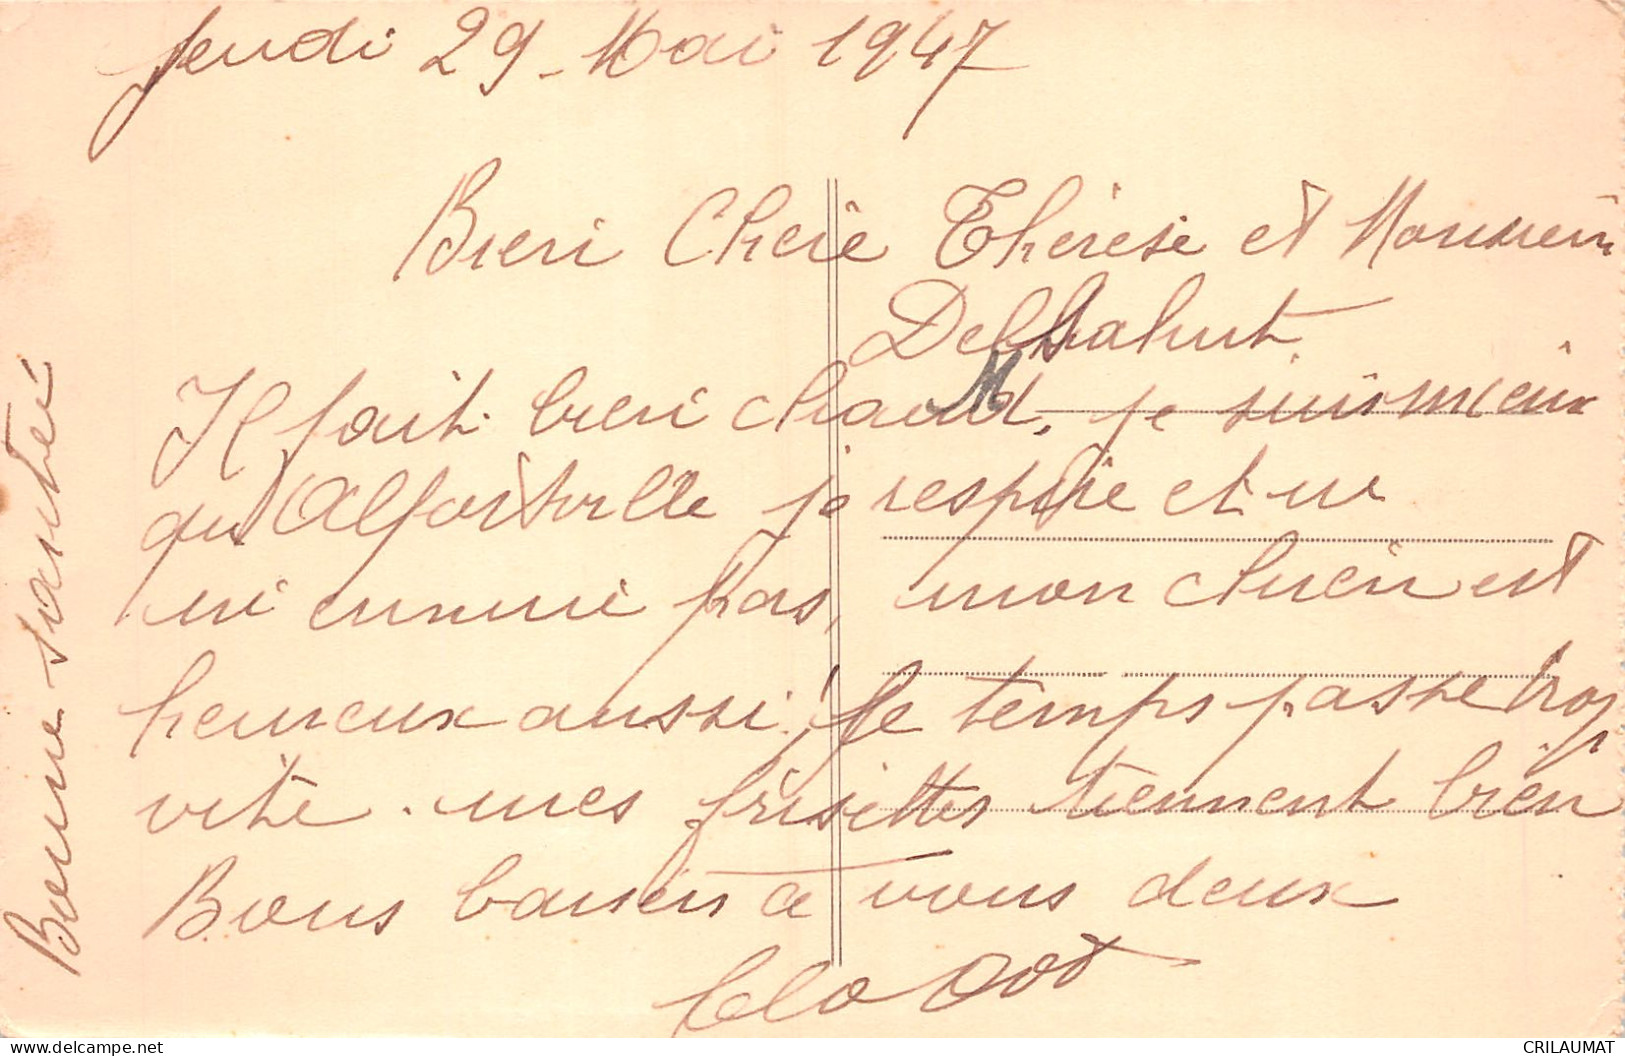 Jeudi 29 - Mai 1947
Bien Chère Thérèse et Monsieur
Il fait bien chaud, je suis mieux
qu'Alfortville je respire et ne
m'ennuie pas, mon chien est
heureux aussi, le temps passe trop
vite. mes frisettes tiennent bien
Bons baisers à vous deux
Bonne santé
CRILAUMAT